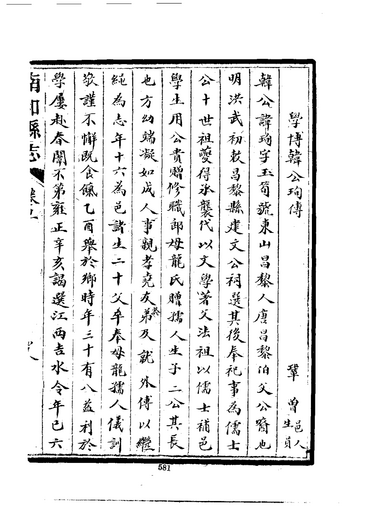 學博韓公珣傳
鞏曾 邑人生員
韓公諱珣字玉荀號東山昌黎人唐昌黎伯文公裔也
明洪武初敕昌黎縣建文公祠選其後奉祀事為儒士
公十世祖薆得承襲代以文學著父法祖以儒士補邑
學生用公貴贈修職郎母龍氏贈孺人生子二公其長
也方幼端凝如成人事親孝堯友弟及就外傅以繼
純為志年十六為邑諸生二十父卒奉母龍孺人儀訓
敬謹不懈既食餼乙酉舉於鄉時年三十有八益利於
學屢赴春闈不第雍正辛亥謁選江西吉水令年已六
南和縣志
卷
581